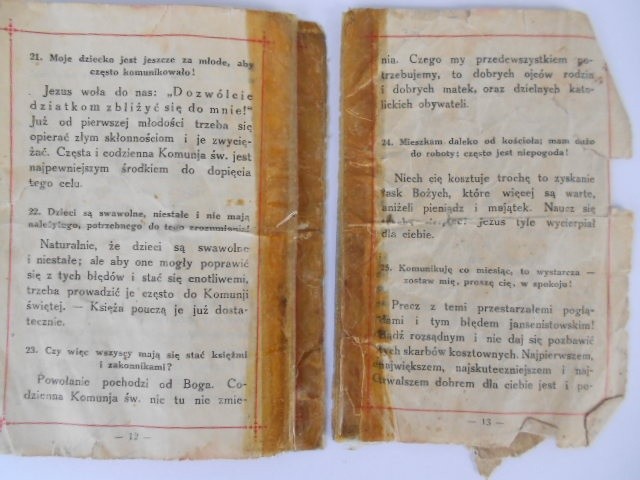 21. Moje dziecko jest jeszcze za młode, aby
często komunikowało!
Jezus woła do nas: „Dozwólcie
dziatkom zbliżyć się do mnie!"
Już od pierwszej młodości trzeba się
opierać złym skłonnościom i je zwycię-
żać. Częsta i codzienna Komunja św. jest
najpewniejszym środkiem do dopięcia
tego celu.
22. Dzieci są swawolne, niestałe i nie mają
należytego, potrzebnego do tego zrozumienia!
Naturalnie, że dzieci są swawolne
i niestałe; ale aby one mogły poprawić
się z tych błędów i stać się cnotliwemi,
trzeba prowadzić je często do Komunji
świętej. — Księża pouczą je już dosta-
tecznie.
23. Czy więc wszyscy mają się stać księżmi
i zakonnikami?
Powołanie pochodzi od Boga. Co-
dzienna Komunja św. nic tu nie zmie-
— 12 —
nia. Czego my przedewszystkiem po-
trzebujemy, to dobrych ojców rodzin
i dobrych matek, oraz dzielnych kato-
lickich obywateli.
24. Mieszkam daleko od kościoła; mam dużo
do roboty; często jest niepogoda!
Niech cię kosztuje trochę to zyskanie
łask Bożych, które więcej są warte,
aniżeli pieniądz i majątek. Naucz się
Jezus tyle wycierpiał
dla ciebie.
25. Komunikuję co miesiąc, to wystarcza —
zostaw mię, proszę cię, w spokoju!
Precz z temi przestarzałemi poglą-
dami i tym błędem jansenistowskim!
Bądź rozsądnym i nie daj się pozbawić
tych skarbów kosztownych. Najpierwszem,
największem, najskuteczniejszem i naj-
trwalszem dobrem dla ciebie jest i po-
— 13 —